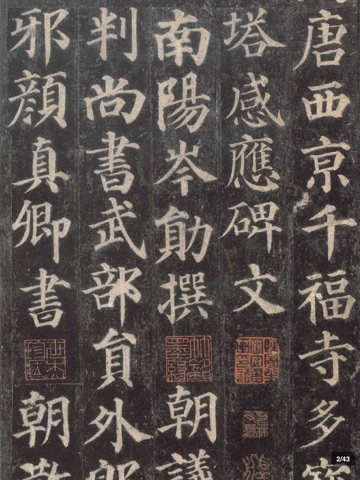 唐西京千福寺多寶
塔感應碑文
南陽岑勛撰 朝議
判尚書武部員外郎
邪顏真卿書 朝散
2/43